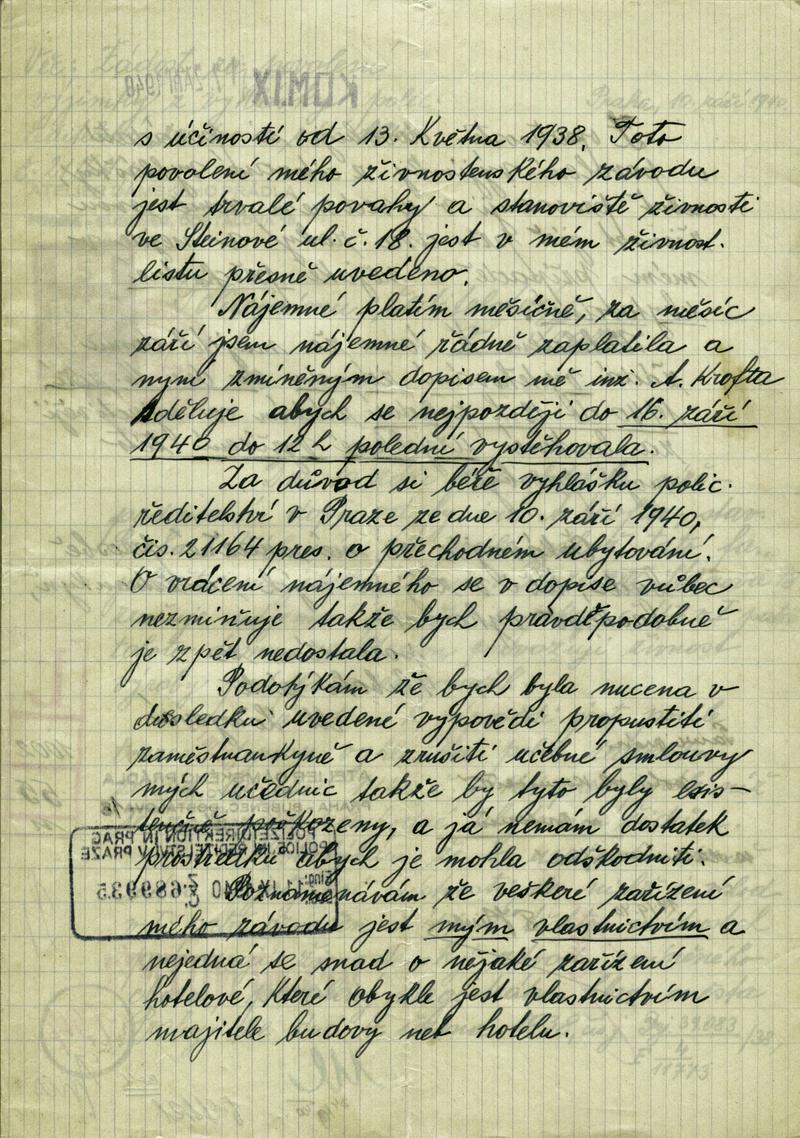 s účinností od 13. Května 1938. Toto
povolení mého živnostenského závodu
jest trvalé povahy a stanoviště živnosti
ve Steinové ul. č. 18. jest v mém živnost.
listu přesně uvedeno.
Nájemné platím měsíčně, za měsíc
září jsem nájemné řádně zaplatila a
nyní zmíněným dopisem mě inž. A. Krofta
sděluje abych se nejpozději do 16. září
1940 do 12 h polední vystěhovala.
Za důvod si béře vyhlášku polic.
ředitelství v Praze ze dne 10. září 1940,
čís. 21164 pres. o přechodném ubytování.
O vrácení nájemného se v dopise vůbec
nezmiňuje takže bych pravděpodobně
je zpět nedostala.
Podotýkám že bych byla nucena v
důsledku uvedené výpovědi propustiti
zaměstnankyně a zrušiti učebné smlouvy
mých učednic takže by tyto byly exis-
tenčně poškozeny, a já nemám dostatek
prostředků abych je mohla odškodniti.
Poznamenávám že veškeré zařízení
mého závodu jest mým vlastnictvím a
nejedná se snad o nějaké zařízení
hotelové, které obykle jest vlastnictvím
majitele budovy neb hotelu.
POLIZEIDIREKTION IN PRAG
POLICEJNÍ ŘEDITELSTVÍ V PRAZE
689935
KOMIX
Praha, 10. září 1940